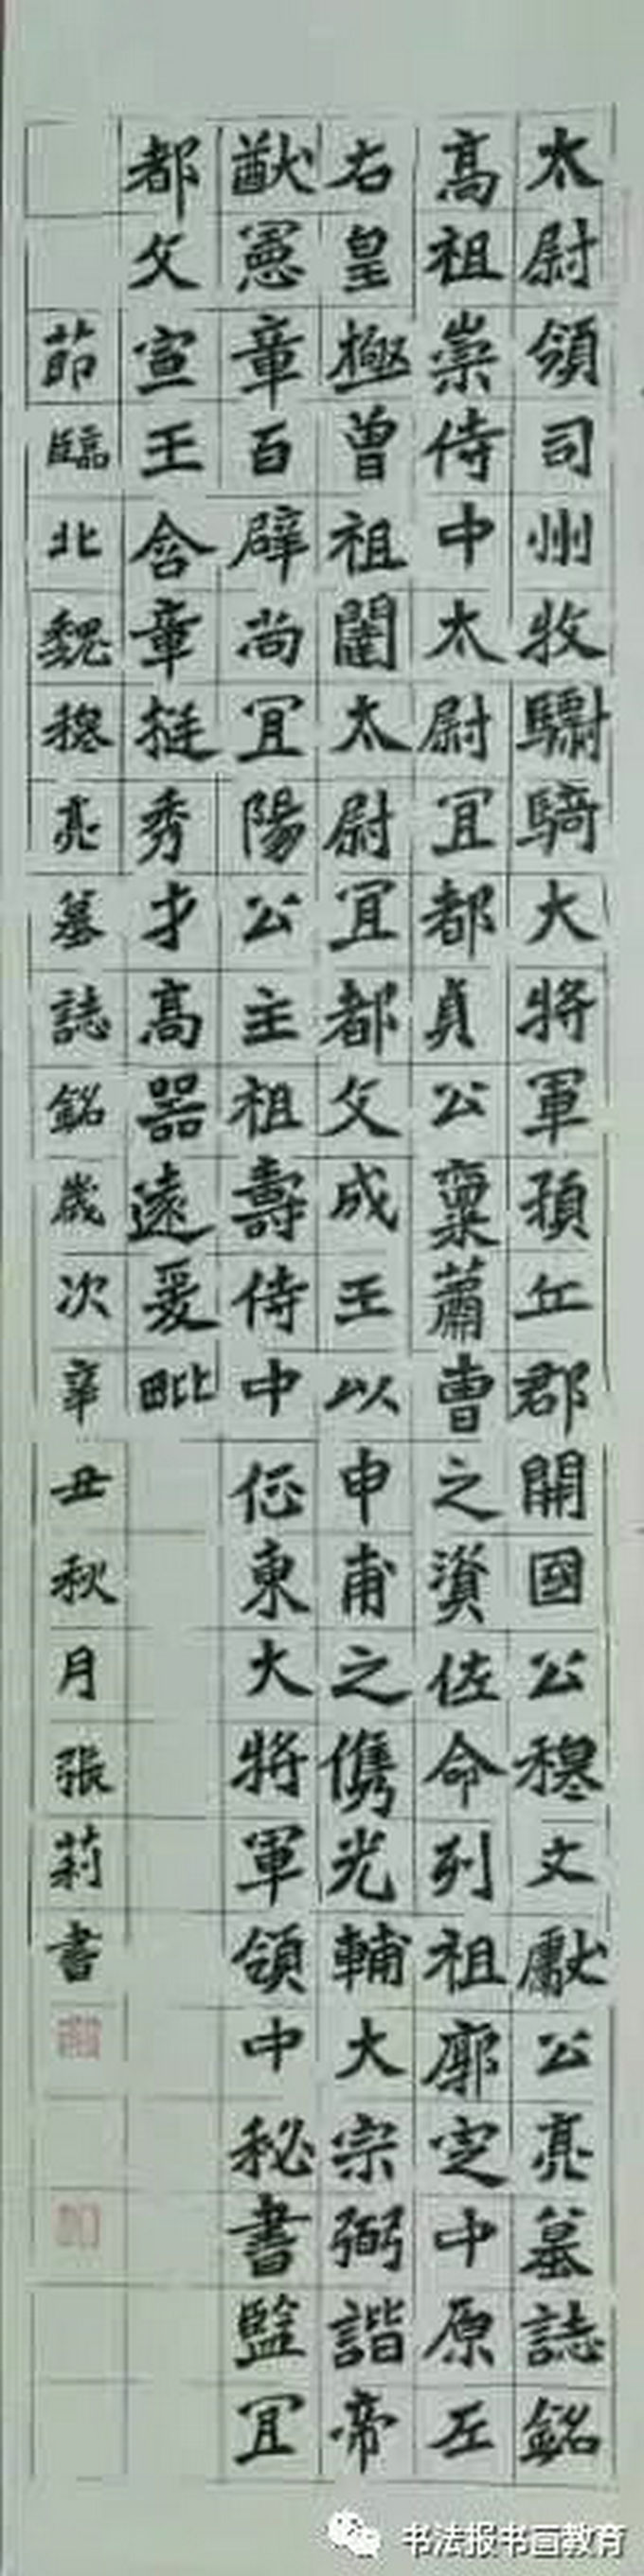 太尉領司州牧驃騎大將軍頓丘郡開國公穆文獻公亮墓誌銘
高祖崇侍中太尉冝都貞公稟蕭曹之資佐命列祖廓定中原左
右皇極曾祖闥太尉冝都文成王以申甫之儁光輔大宗弼諧帝
猷憲章百辟尚冝陽公主祖壽侍中征東大將軍領中秘書監冝
都文宣王含章挺秀才高器遠爰毗
節臨北魏穆亮墓誌銘歲次辛丑秋月張莉書
书法报书画教育